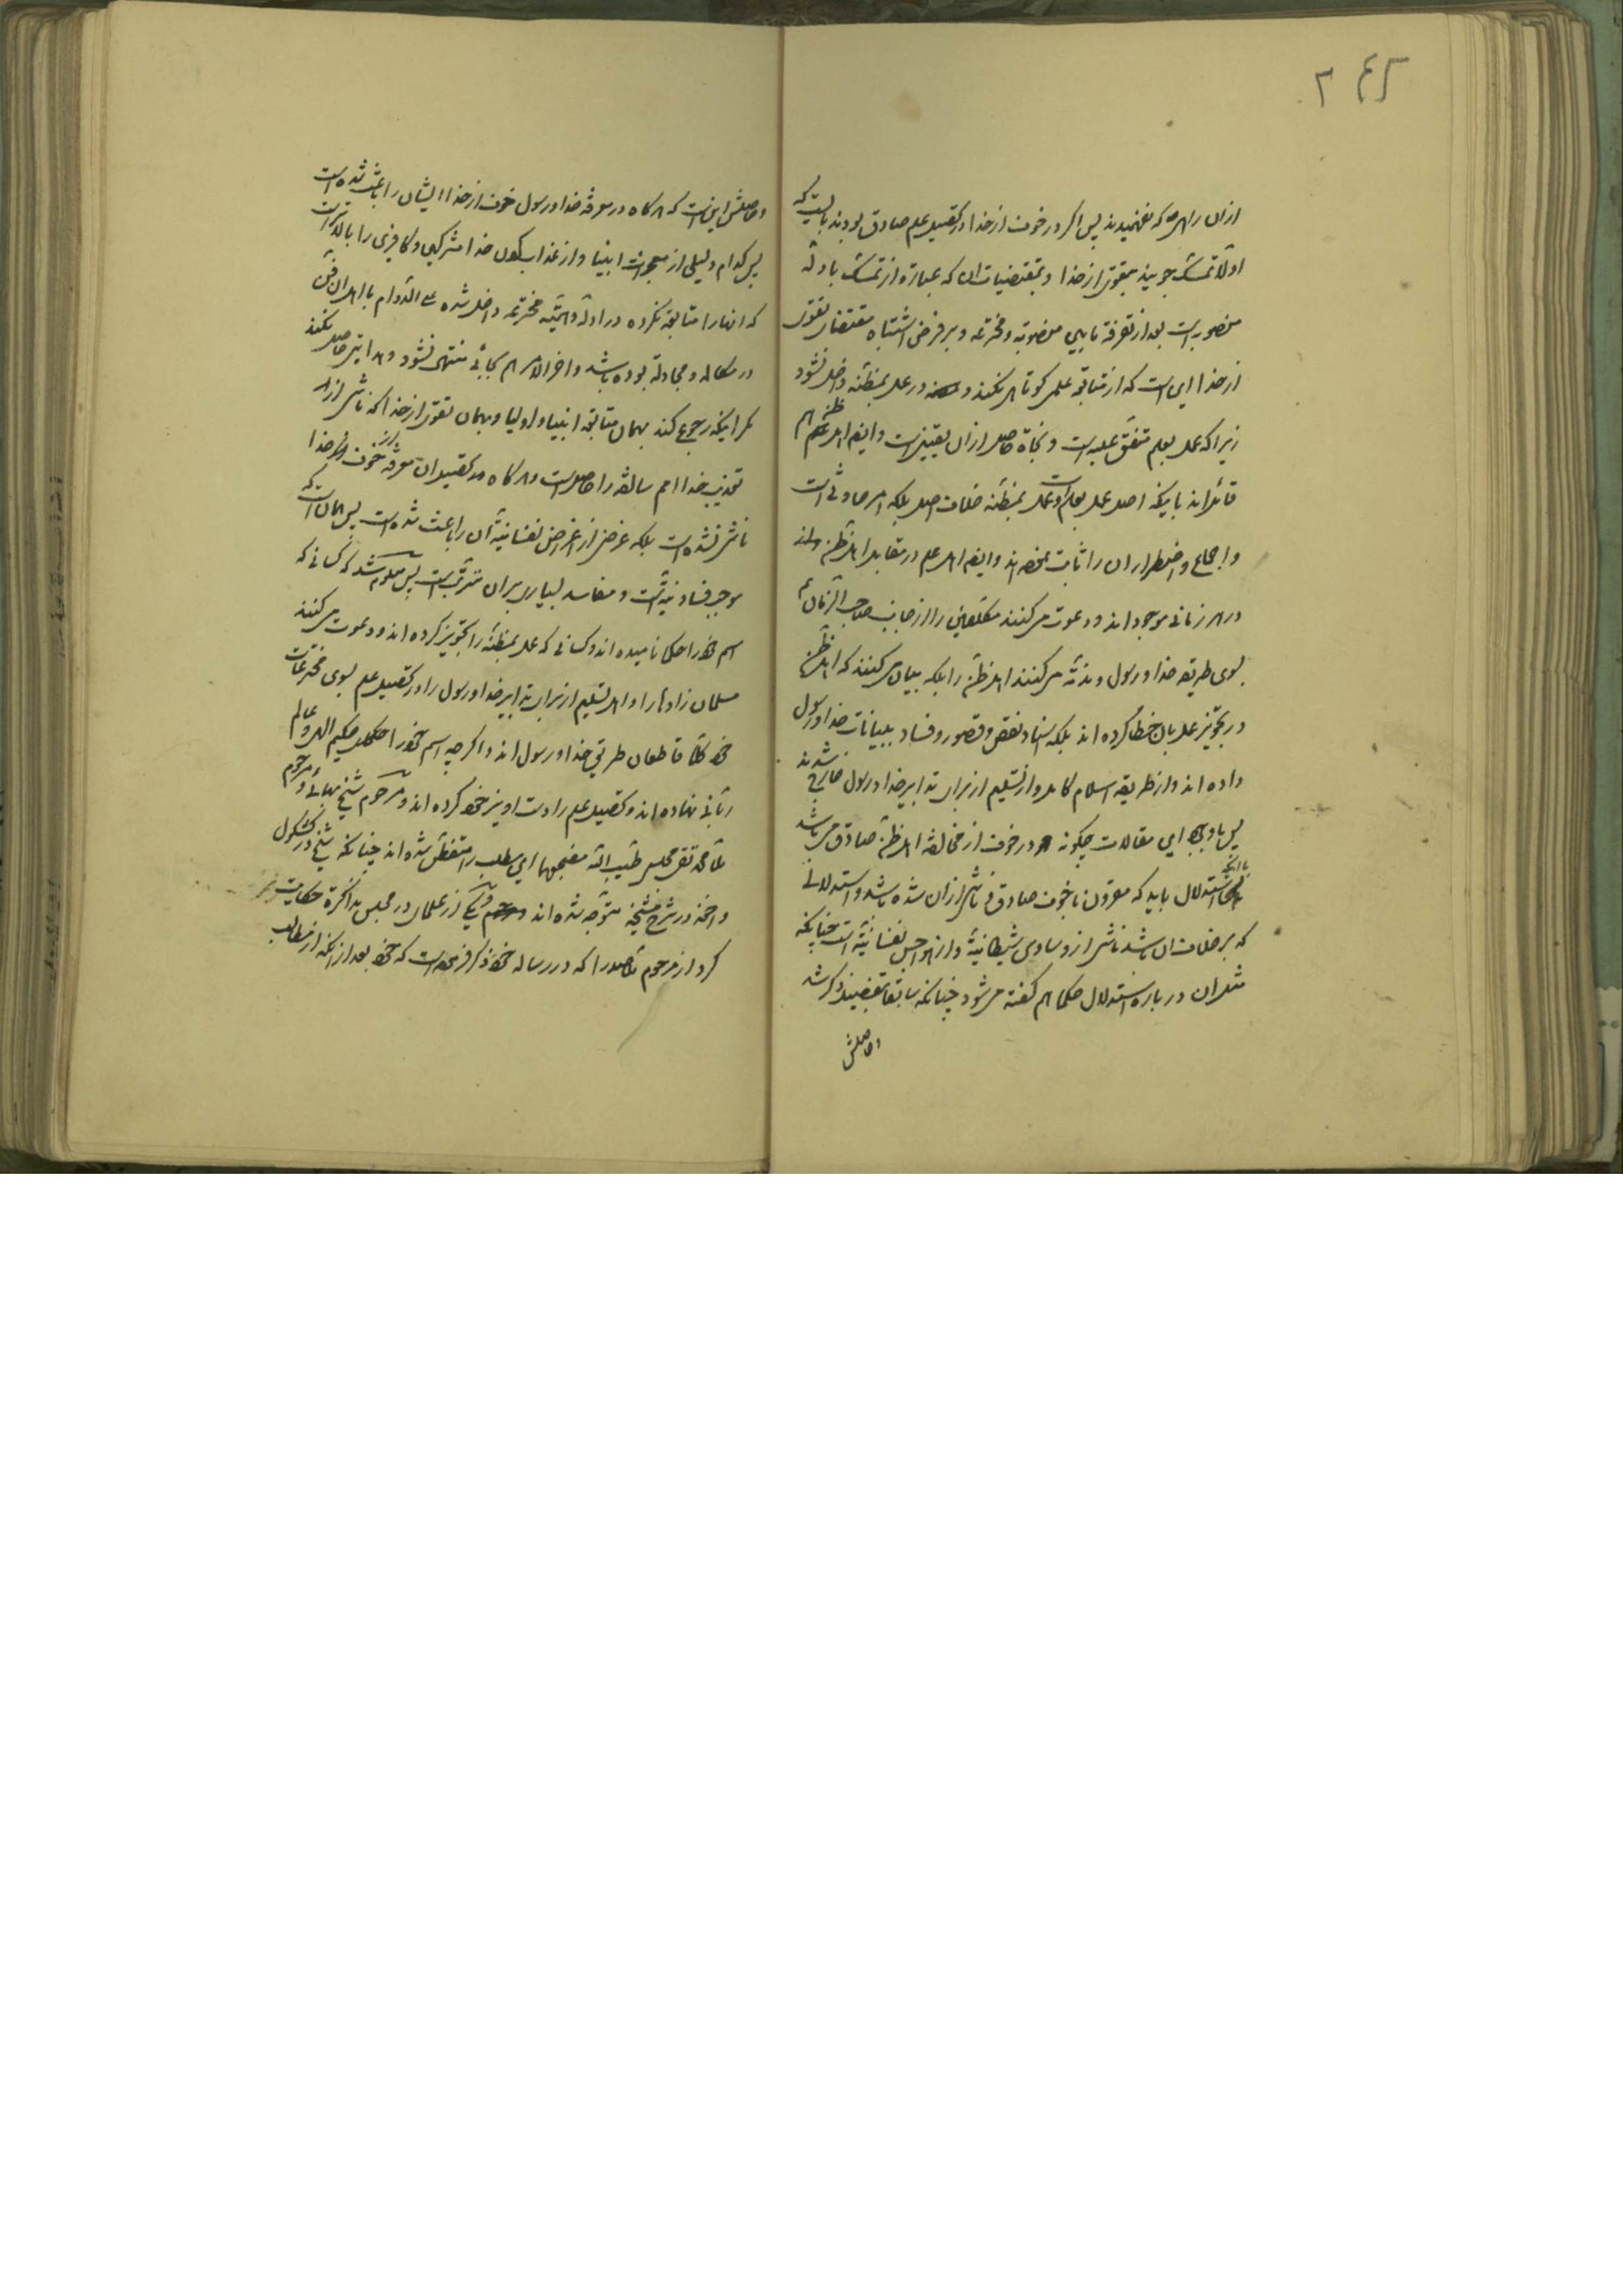 ۲۴۲
ازان راهی که نفهمیدند پس اگر در خوف از خدا در تحصیل علم صادق بودند بایست که
اولا تمسک جویند بتقوی از خدا و بمقتضیات آن که عبارة از تمسک بادله
منصوبه است بعد از تفرقه مابین منصوبه و مخترعه و بر فرض اشتباه مقتضای تقوی
از خدا این است که از متابعة علم کوتاهی نکنند و در عمل بمظنه داخل نشود
زیرا که عمل بعلم متفق علیه است و نجاة حاصل ازان یقینی است و ایضا اهل ظن هم
قائل اند باینکه اصل عمل بعلم است و عمل بمظنه خلاف اصل بلکه امر حادثی است
و اجماع و اضطرار ان را ثابت نموده اند و ایضا اهل علم در مقابل اهل ظن
در هر زمانی موجود اند و دعوت می کنند مکلفین را از جانب صاحب الزمان ع
بسوی طریقه خدا و رسول و مذمة می کنند اهل ظن را بلکه بیان می کنند که اهل ظن
در تجویز عمل بان خطا کرده اند بلکه اسناد نقص و قصور و فساد ببیانات خدا و رسول
داده اند و از طریقه اسلام کامل و از تسلیم از برای تدابیر خدا و رسول خارج شدند
پس با وجود این مقالات چگونه در خوف از مخالفة اهل ظن صادق می باشد
استدلال باید که مقرون با خوف صادق و ناشی ازان شده باشد و استدلالی
که بر خلاف ان باشد ناشی از وساوس شیطانیة و از هواجس نفسانیة است چنانکه
مثل ان در باره استدلال حکما هم گفته می شود چنانکه سابقا بتفصیل ذکر شد
وحاصلش
وحاصلش این است که هرگاه در معرفة خدا و رسول خوف از خدا ایشان را باعث شده است
پس کدام دلیلی از معجزات انبیا و از عذاب کردن خدا مشرکین و کافرین را بالاتر است
که انها را متابعة نکرده در ادله واهیه مخترعه داخل شده علی الدوام با اهل ان فن
در مکالمه و مجادلة بوده باشد و اخر الامر هم بجائی منتهی نشود و هدایتی حاصل نکند
مگر اینکه رجوع کند بهمان متابعة انبیا و اولیا و بهمان تقوی از خدا که ناشی از
تعذیب خدا امم سالفه را حاصل است و هرگاه در تحصیل ان معرفة خوف از خدا
ناشی نشده است بلکه غرضی از اغراض نفسانیة آن را باعث شده است پس همان است که
موجب فساد نیة است و مفاسد بسیاری بران مترتب است پس معلوم شد که کسانی که
اسم خود را حکما نامیده اند و کسانی که عمل بمظنه را تجویز کرده اند و دعوت می کنند
مسلمان زادها را و اهل تسلیم از برای تدابیر خدا و رسول را در تحصیل علم بسوی مخترعات
خود کلا قاطعان طریق خدا و رسول اند و اگر چه اسم خود را حکیم الهی و عالم
ربانی نهاده اند و تحصیل علم را دست اویز خود کرده اند و مرحوم شیخ بهائی و مرحوم
ملا محمد تقی مجلسی طیب الله مضجعهما این مطلب را متفطن شده اند چنانکه شیخ در کشکول
و اخوند در شرح مشیخه متوجه شده اند و یکی از علما در مجلس مذاکرة حکایت
کرد از مرحوم ملا صدرا که در رساله خود ذکر فرموده است که خود بعد از انکه از مطالب